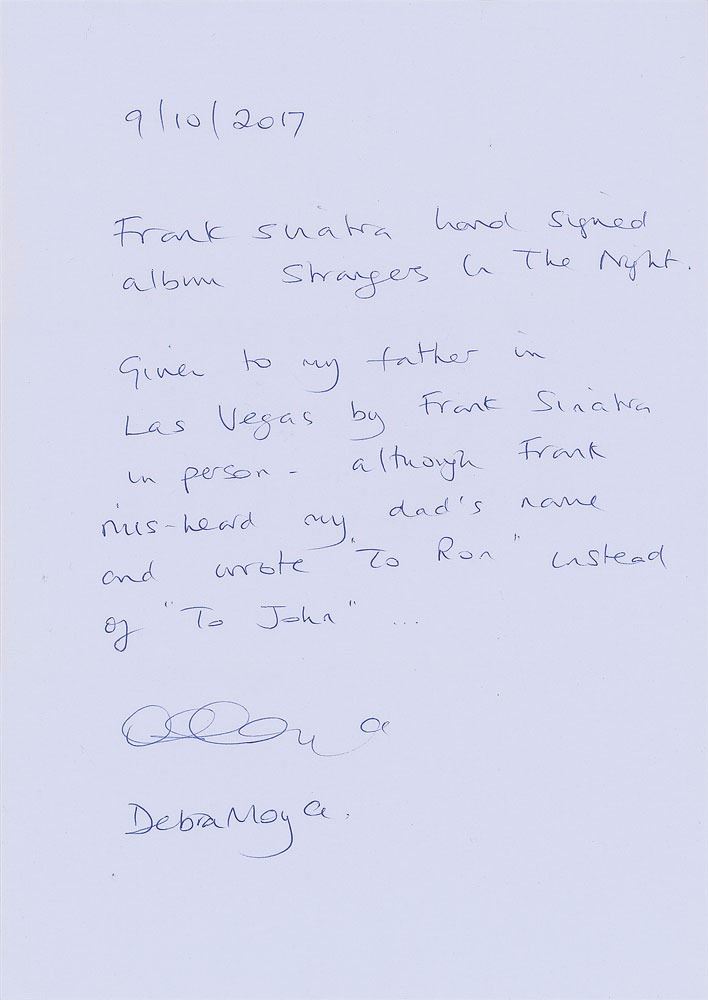 9/10/2017
Frank Sinatra hand signed
album Strangers In The Night.
Given to my father in
Las Vegas by Frank Sinatra
in person - although Frank
mis-heard my dad's name
and wrote "To Ron" instead
of "To John" ...
Debra Moya.